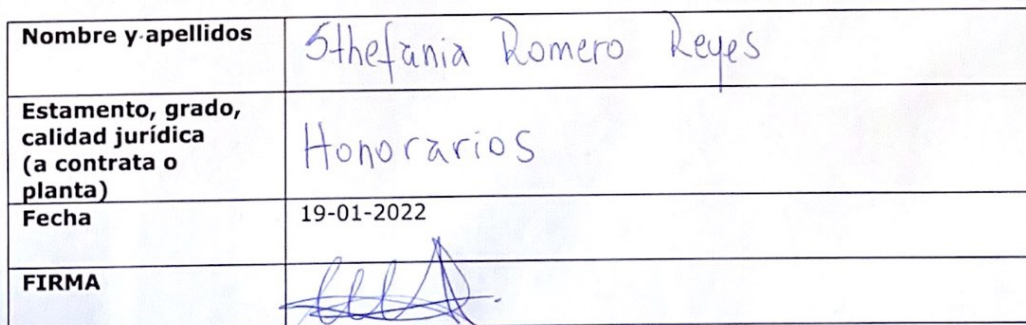 Nombre y apellidos
Sthefania Romero Reyes
Estamento, grado,
calidad jurídica
(a contrata o
planta)
Honorarios
Fecha
19-01-2022
FIRMA